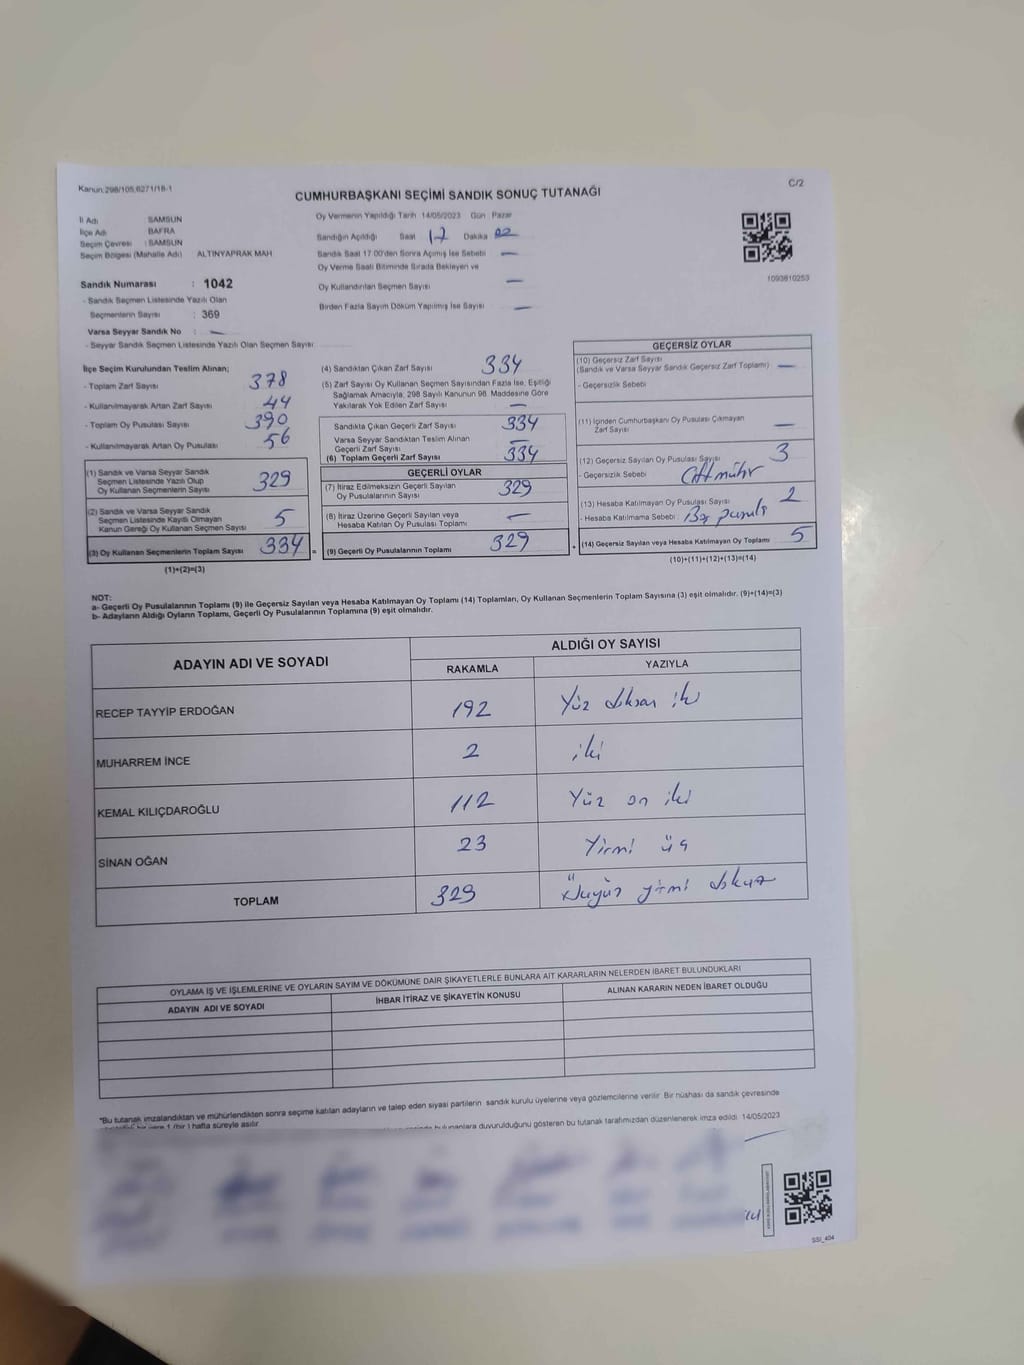 Kanun:298/105,6271/18-1
C/2
CUMHURBAŞKANI SEÇİMİ SANDIK SONUÇ TUTANAĞI
İl Adı SAMSUN
İlçe Adı BAFRA
Seçim Çevresi : SAMSUN
Seçim Bölgesi (Mahalle Adı) ALTINYAPRAK MAH
Sandık Numarası : 1042
- Sandık Seçmen Listesinde Yazılı Olan
Seçmenlerin Sayısı : 369
Varsa Seyyar Sandık No : —
- Seyyar Sandık Seçmen Listesinde Yazılı Olan Seçmen Sayısı:
Oy Vermenin Yapıldığı Tarih 14/05/2023 Gün : Pazar
Sandığın Açıldığı Saat 17 Dakika 02
Sandık Saat 17:00'den Sonra Açılmış İse Sebebi —
Oy Verme Saati Bitiminde Sırada Bekleyen ve
Oy Kullandırılan Seçmen Sayısı —
Birden Fazla Sayım Döküm Yapılmış İse Sayısı —
1093810253
İlçe Seçim Kurulundan Teslim Alınan;
- Toplam Zarf Sayısı 378
- Kullanılmayarak Artan Zarf Sayısı 44
- Toplam Oy Pusulası Sayısı 390
- Kullanılmayarak Artan Oy Pusulası 56
(1) Sandık ve Varsa Seyyar Sandık
Seçmen Listesinde Yazılı Olup
Oy Kullanan Seçmenlerin Sayısı 329
(2) Sandık ve Varsa Seyyar Sandık
Seçmen Listesinde Kayıtlı Olmayan
Kanun Gereği Oy Kullanan Seçmen Sayısı 5
(3) Oy Kullanan Seçmenlerin Toplam Sayısı 334 =
(1)+(2)=(3)
(4) Sandıktan Çıkan Zarf Sayısı 334
(5) Zarf Sayısı Oy Kullanan Seçmen Sayısından Fazla İse, Eşitliği
Sağlamak Amacıyla, 298 Sayılı Kanunun 98. Maddesine Göre
Yakılarak Yok Edilen Zarf Sayısı —
Sandıkta Çıkan Geçerli Zarf Sayısı 334
Varsa Seyyar Sandıktan Teslim Alınan
Geçerli Zarf Sayısı —
(6) Toplam Geçerli Zarf Sayısı 334
GEÇERLİ OYLAR
(7) İtiraz Edilmeksizin Geçerli Sayılan
Oy Pusulalarının Sayısı 329
(8) İtiraz Üzerine Geçerli Sayılan veya
Hesaba Katılan Oy Pusulası Toplamı —
(9) Geçerli Oy Pusulalarının Toplamı 329 +
GEÇERSİZ OYLAR
(10) Geçersiz Zarf Sayısı
(Sandık ve Varsa Seyyar Sandık Geçersiz Zarf Toplamı) —
- Geçersizlik Sebebi
(11) İçinden Cumhurbaşkanı Oy Pusulası Çıkmayan
Zarf Sayısı —
(12) Geçersiz Sayılan Oy Pusulası Sayısı 3
- Geçersizlik Sebebi
(13) Hesaba Katılmayan Oy Pusulası Sayısı 2
- Hesaba Katılmama Sebebi :
(14) Geçersiz Sayılan veya Hesaba Katılmayan Oy Toplamı 5
(10)+(11)+(12)+(13)=(14)
NOT:
a- Geçerli Oy Pusulalarının Toplamı (9) ile Geçersiz Sayılan veya Hesaba Katılmayan Oy Toplamı (14) Toplamları, Oy Kullanan Seçmenlerin Toplam Sayısına (3) eşit olmalıdır. (9)+(14)=(3)
b- Adayların Aldığı Oyların Toplamı, Geçerli Oy Pusulalarının Toplamına (9) eşit olmalıdır.
ADAYIN ADI VE SOYADI
ALDIĞI OY SAYISI
RAKAMLA YAZIYLA
RECEP TAYYİP ERDOĞAN 192 Yüz doksan iki
MUHARREM İNCE 2 iki
KEMAL KILIÇDAROĞLU 112 Yüz on iki
SİNAN OĞAN 23 Yirmi üç
TOPLAM 329 Üçyüz yirmi dokuz
OYLAMA İŞ VE İŞLEMLERİNE VE OYLARIN SAYIM VE DÖKÜMÜNE DAİR ŞİKAYETLERLE BUNLARA AİT KARARLARIN NELERDEN İBARET BULUNDUKLARI
ADAYIN ADI VE SOYADI İHBAR İTİRAZ VE ŞİKAYETİN KONUSU ALINAN KARARIN NEDEN İBARET OLDUĞU
*Bu tutanak imzalandıktan ve mühürlendikten sonra seçime katılan adayların ve talep eden siyasi partilerin sandık kurulu üyelerine veya gözlemcilerine verilir. Bir nüshası da sandık çevresinde
1 (bir) hafta süreyle asılır. duyurulduğunu gösteren bu tutanak tarafımızdan düzenlenerek imza edildi. 14/05/2023
SSI_404